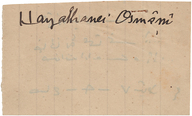 Hayalhanei Osmâni